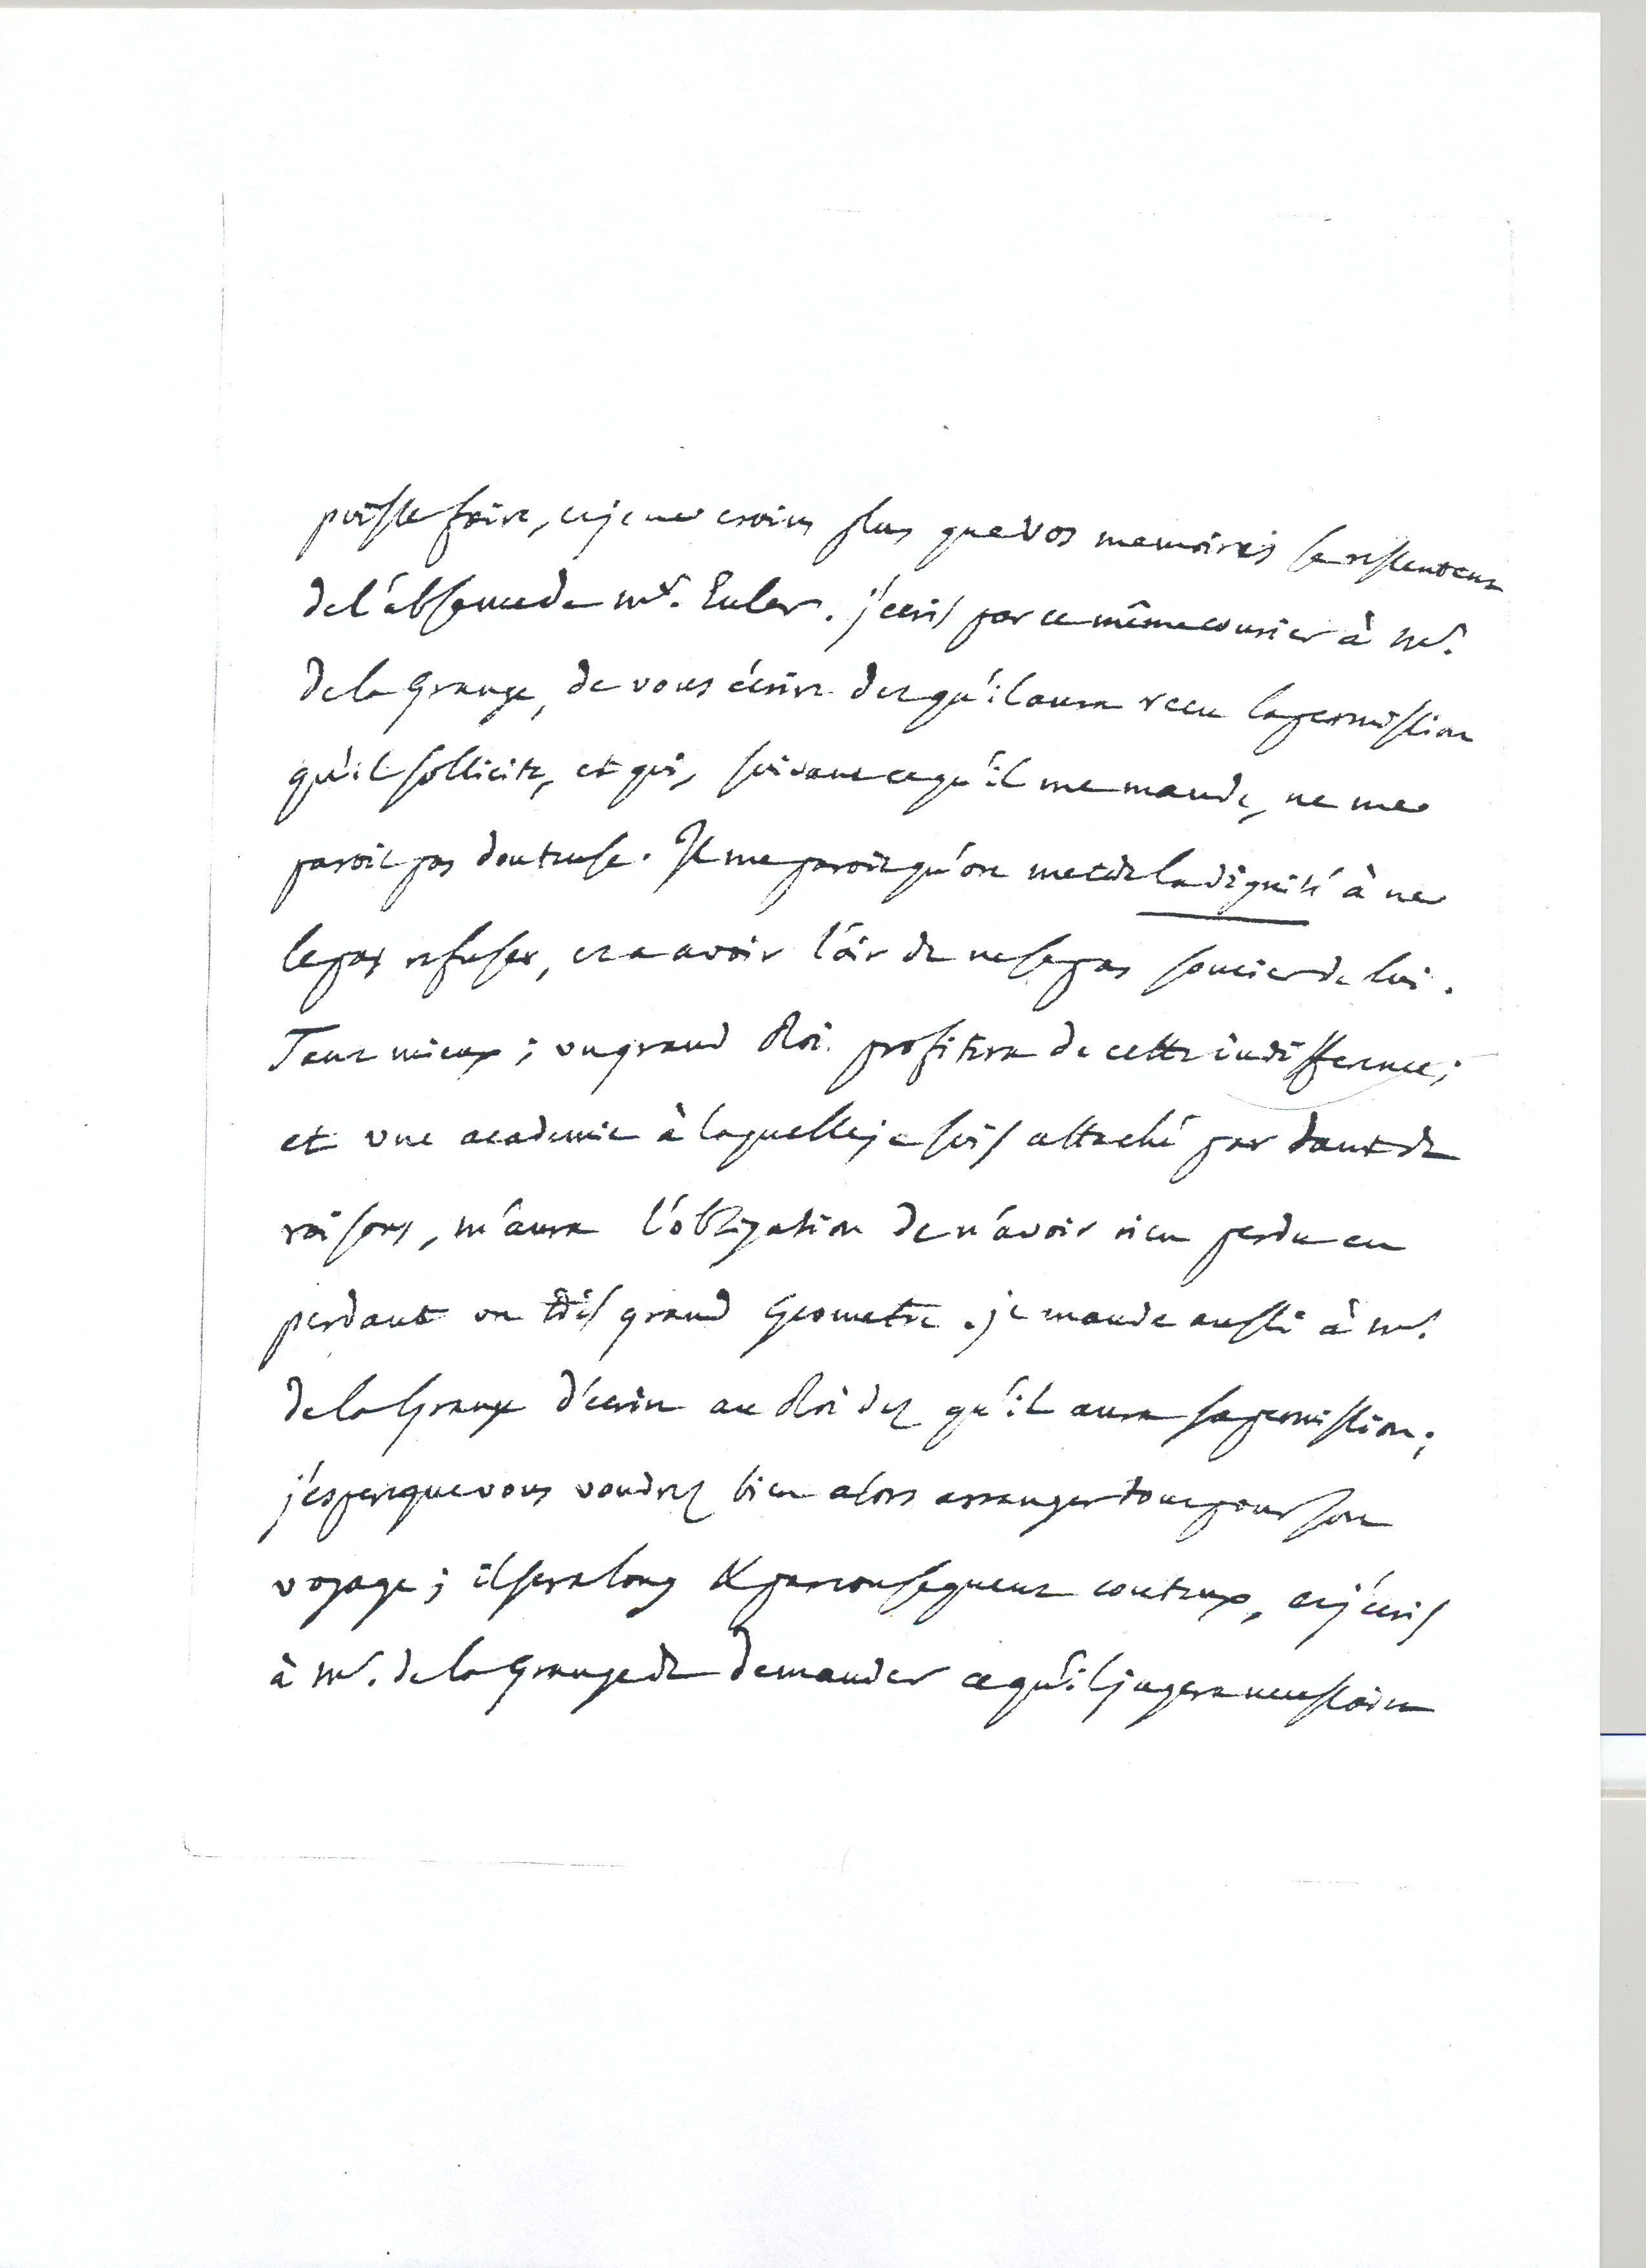 puisse faire, et je ne crains plus que vos memoires se ressentent
de l'absence de Mr. Euler. j'ecris par ce même courier à Mr.
de la Grange, de vous écrire des qu'il aura recu la permission
qu'il sollicite, et qui, suivant ce qu'il me mande, ne me
paroit pas douteuse. Il me paroit qu'on met de la dignité à ne
le pas refuser, et a avoir l'air de ne se pas soucier de lui.
Tant mieux; un grand Roi profitera de cette indifference;
et une academie à laquelle je suis attaché par tant de
raisons, m'aura l'obligation de n'avoir rien perdu en
perdant un très grand Geometre. je mande aussi à Mr.
de la Grange d'ecrire au Roi dez qu'il aura sa permission;
j'espere que vous voudrez bien alors arranger tout pour son
voyage; il sera long & par consequent couteux, et j'ecris
à Mr. de la Grange de demander ce qu'il jugera necessaire